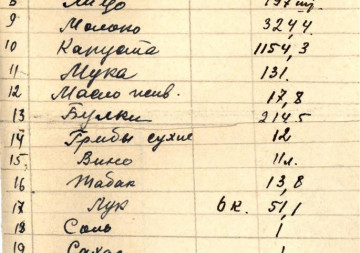 8 Яйцо 197 шт.
9 Молоко 324,4
10 Капуста 1154,3
11 Мука 131.
12 Масло жив. 17,8
13 Булки 214.5
14 Грибы сухие 12
15. Вино 11 л.
16 Табак 13,8
17 Лук 6 к. 51,1
18 Соль 1
19 Сахар 1